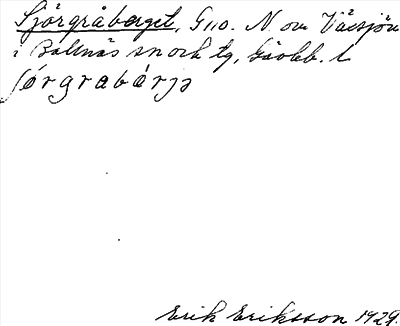 Sjörgråberget, G110. N. om Växsjön
i Bollnäs sn och tg, Gävleb. l
sörgrabérjə
Erik Eriksson 1929.